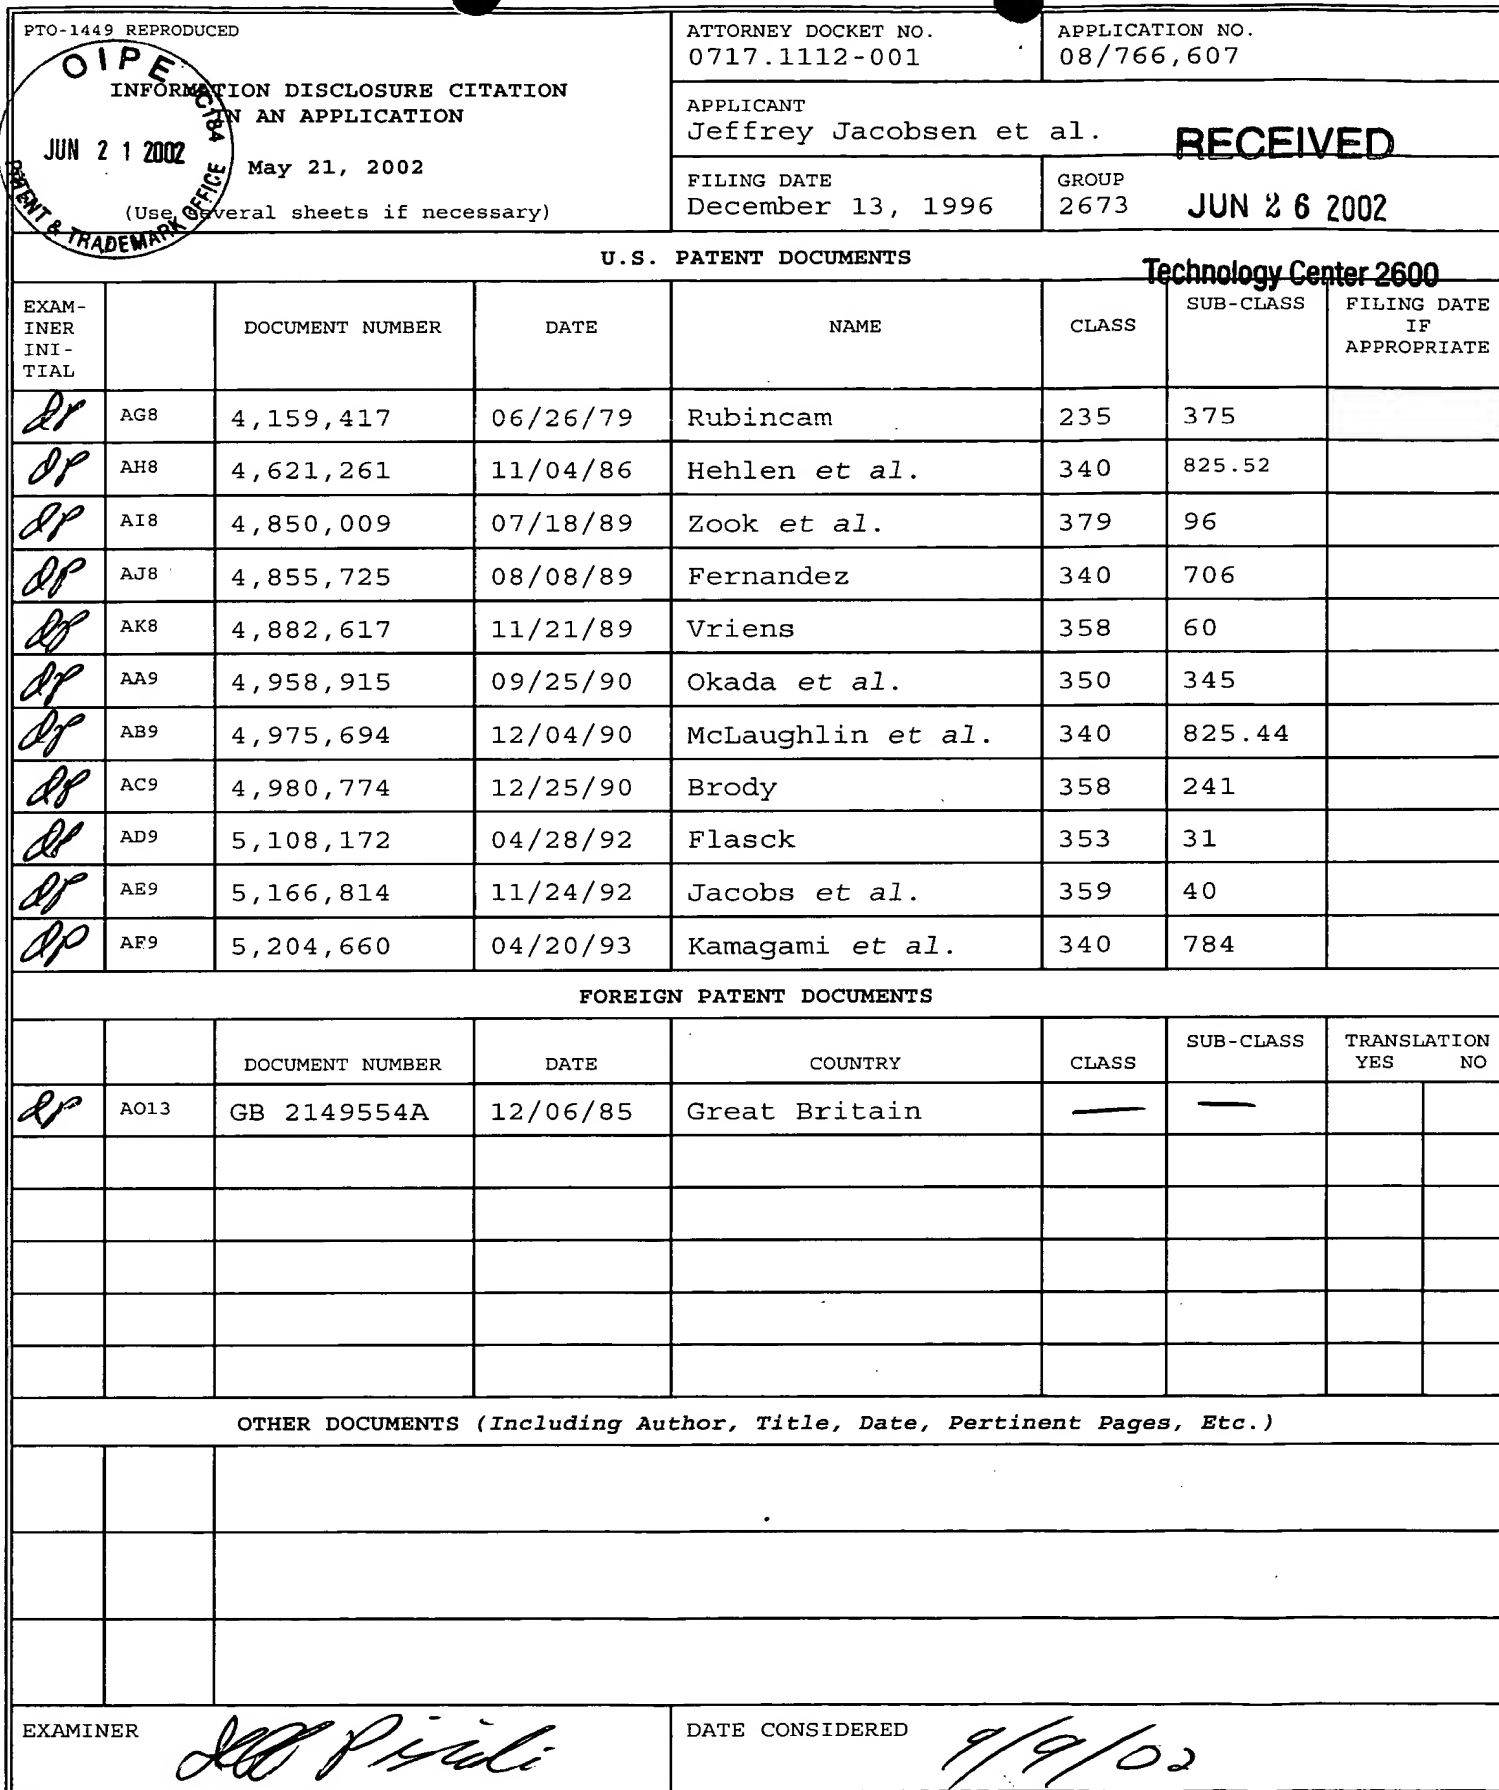 PTO-1449 REPRODUCED
INFORMATION DISCLOSURE CITATION
IN AN APPLICATION
May 21, 2002
(Use several sheets if necessary)
OIPE
JC184
JUN 21 2002
PATENT & TRADEMARK OFFICE
ATTORNEY DOCKET NO.
0717.1112-001
APPLICATION NO.
08/766,607
APPLICANT
Jeffrey Jacobsen et al.
RECEIVED
FILING DATE
December 13, 1996
GROUP
2673
JUN 26 2002
U.S. PATENT DOCUMENTS
Technology Center 2600
EXAM-
INER
INI-
TIAL
DOCUMENT NUMBER DATE NAME CLASS SUB-CLASS FILING DATE
IF
APPROPRIATE
AG8 4,159,417 06/26/79 Rubincam 235 375
AH8 4,621,261 11/04/86 Hehlen et al. 340 825.52
AI8 4,850,009 07/18/89 Zook et al. 379 96
AJ8 4,855,725 08/08/89 Fernandez 340 706
AK8 4,882,617 11/21/89 Vriens 358 60
AA9 4,958,915 09/25/90 Okada et al. 350 345
AB9 4,975,694 12/04/90 McLaughlin et al. 340 825.44
AC9 4,980,774 12/25/90 Brody 358 241
AD9 5,108,172 04/28/92 Flasck 353 31
AE9 5,166,814 11/24/92 Jacobs et al. 359 40
AF9 5,204,660 04/20/93 Kamagami et al. 340 784
FOREIGN PATENT DOCUMENTS
DOCUMENT NUMBER DATE COUNTRY CLASS SUB-CLASS TRANSLATION
YES NO
AO13 GB 2149554A 12/06/85 Great Britain — —
OTHER DOCUMENTS (Including Author, Title, Date, Pertinent Pages, Etc.)
EXAMINER
DATE CONSIDERED 9/9/02